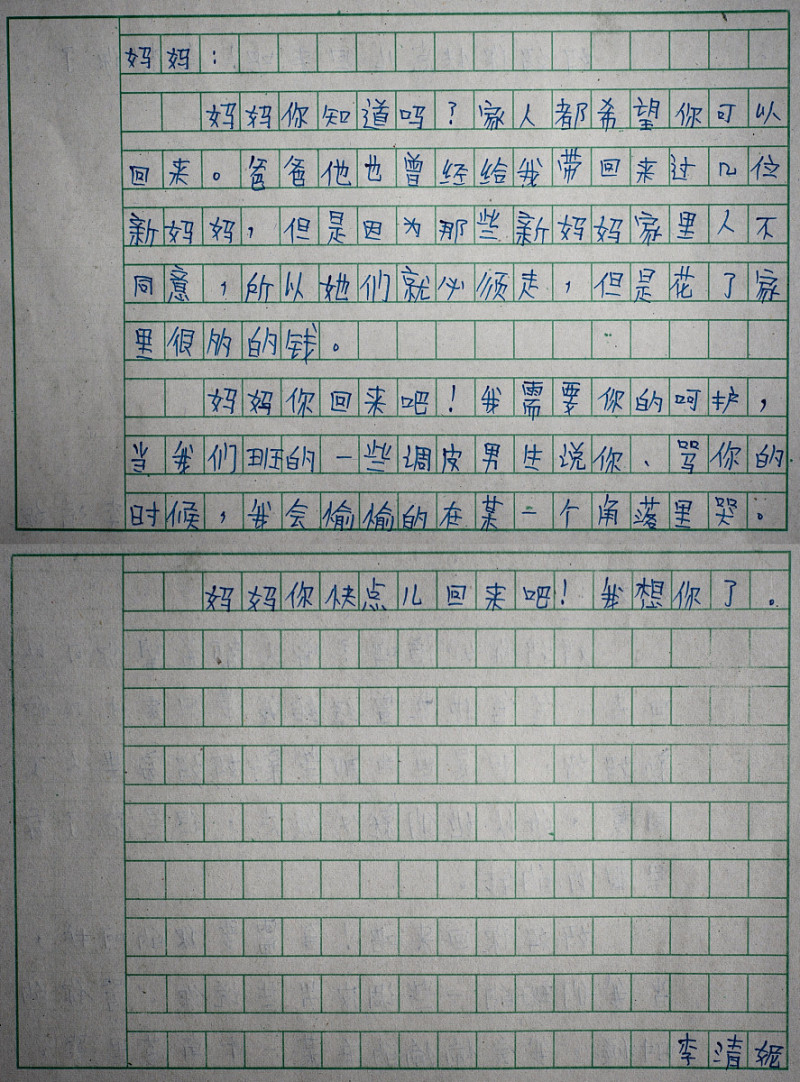 妈妈：
妈妈你知道吗？家人都希望你可以
回来。爸爸他也曾经给我带回来过几位
新妈妈，但是因为那些新妈妈家里人不
同意，所以她们就必须走，但是花了家
里很多的钱。
妈妈你回来吧！我需要你的呵护，
当我们班的一些调皮男生说你、骂你的
时候，我会偷偷的在某一个角落里哭。
妈妈你快点儿回来吧！我想你了。
李清妮